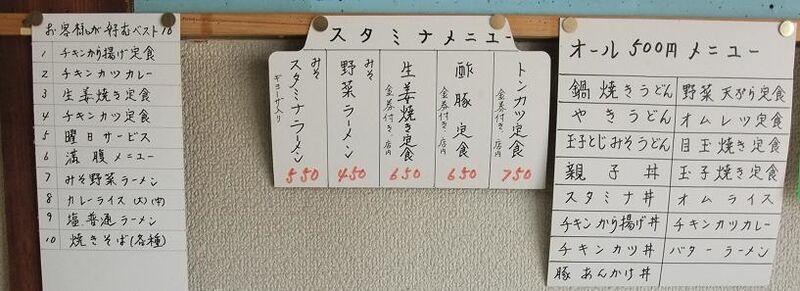 お客様が好むベスト10
1 チキンから揚げ定食
2 チキンカツカレー
3 生姜焼き定食
4 チキンカツ定食
5 曜日サービス
6 満腹メニュー
7 みそ野菜ラーメン
8 カレーライス(大)(中)
9 塩普通ラーメン
10 焼きそば(各種)
スタミナメニュー
トンカツ定食
金券付き、店内
750
酢豚定食
金券付き、店内
650
生姜焼き定食
金券付き、店内
650
みそ
野菜ラーメン
450
みそ
スタミナラーメン
ギョーザ入り
550
オール500円メニュー
鍋焼きうどん 野菜天ぷら定食
やきうどん オムレツ定食
玉子とじみそうどん 目玉焼き定食
親子丼 玉子焼き定食
スタミナ丼 オムライス
チキンから揚げ丼 チキンカツカレー
チキンカツ丼 バターラーメン
豚あんかけ丼